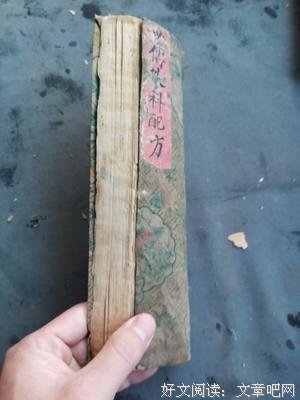 科配方
好文阅读：文章吧网